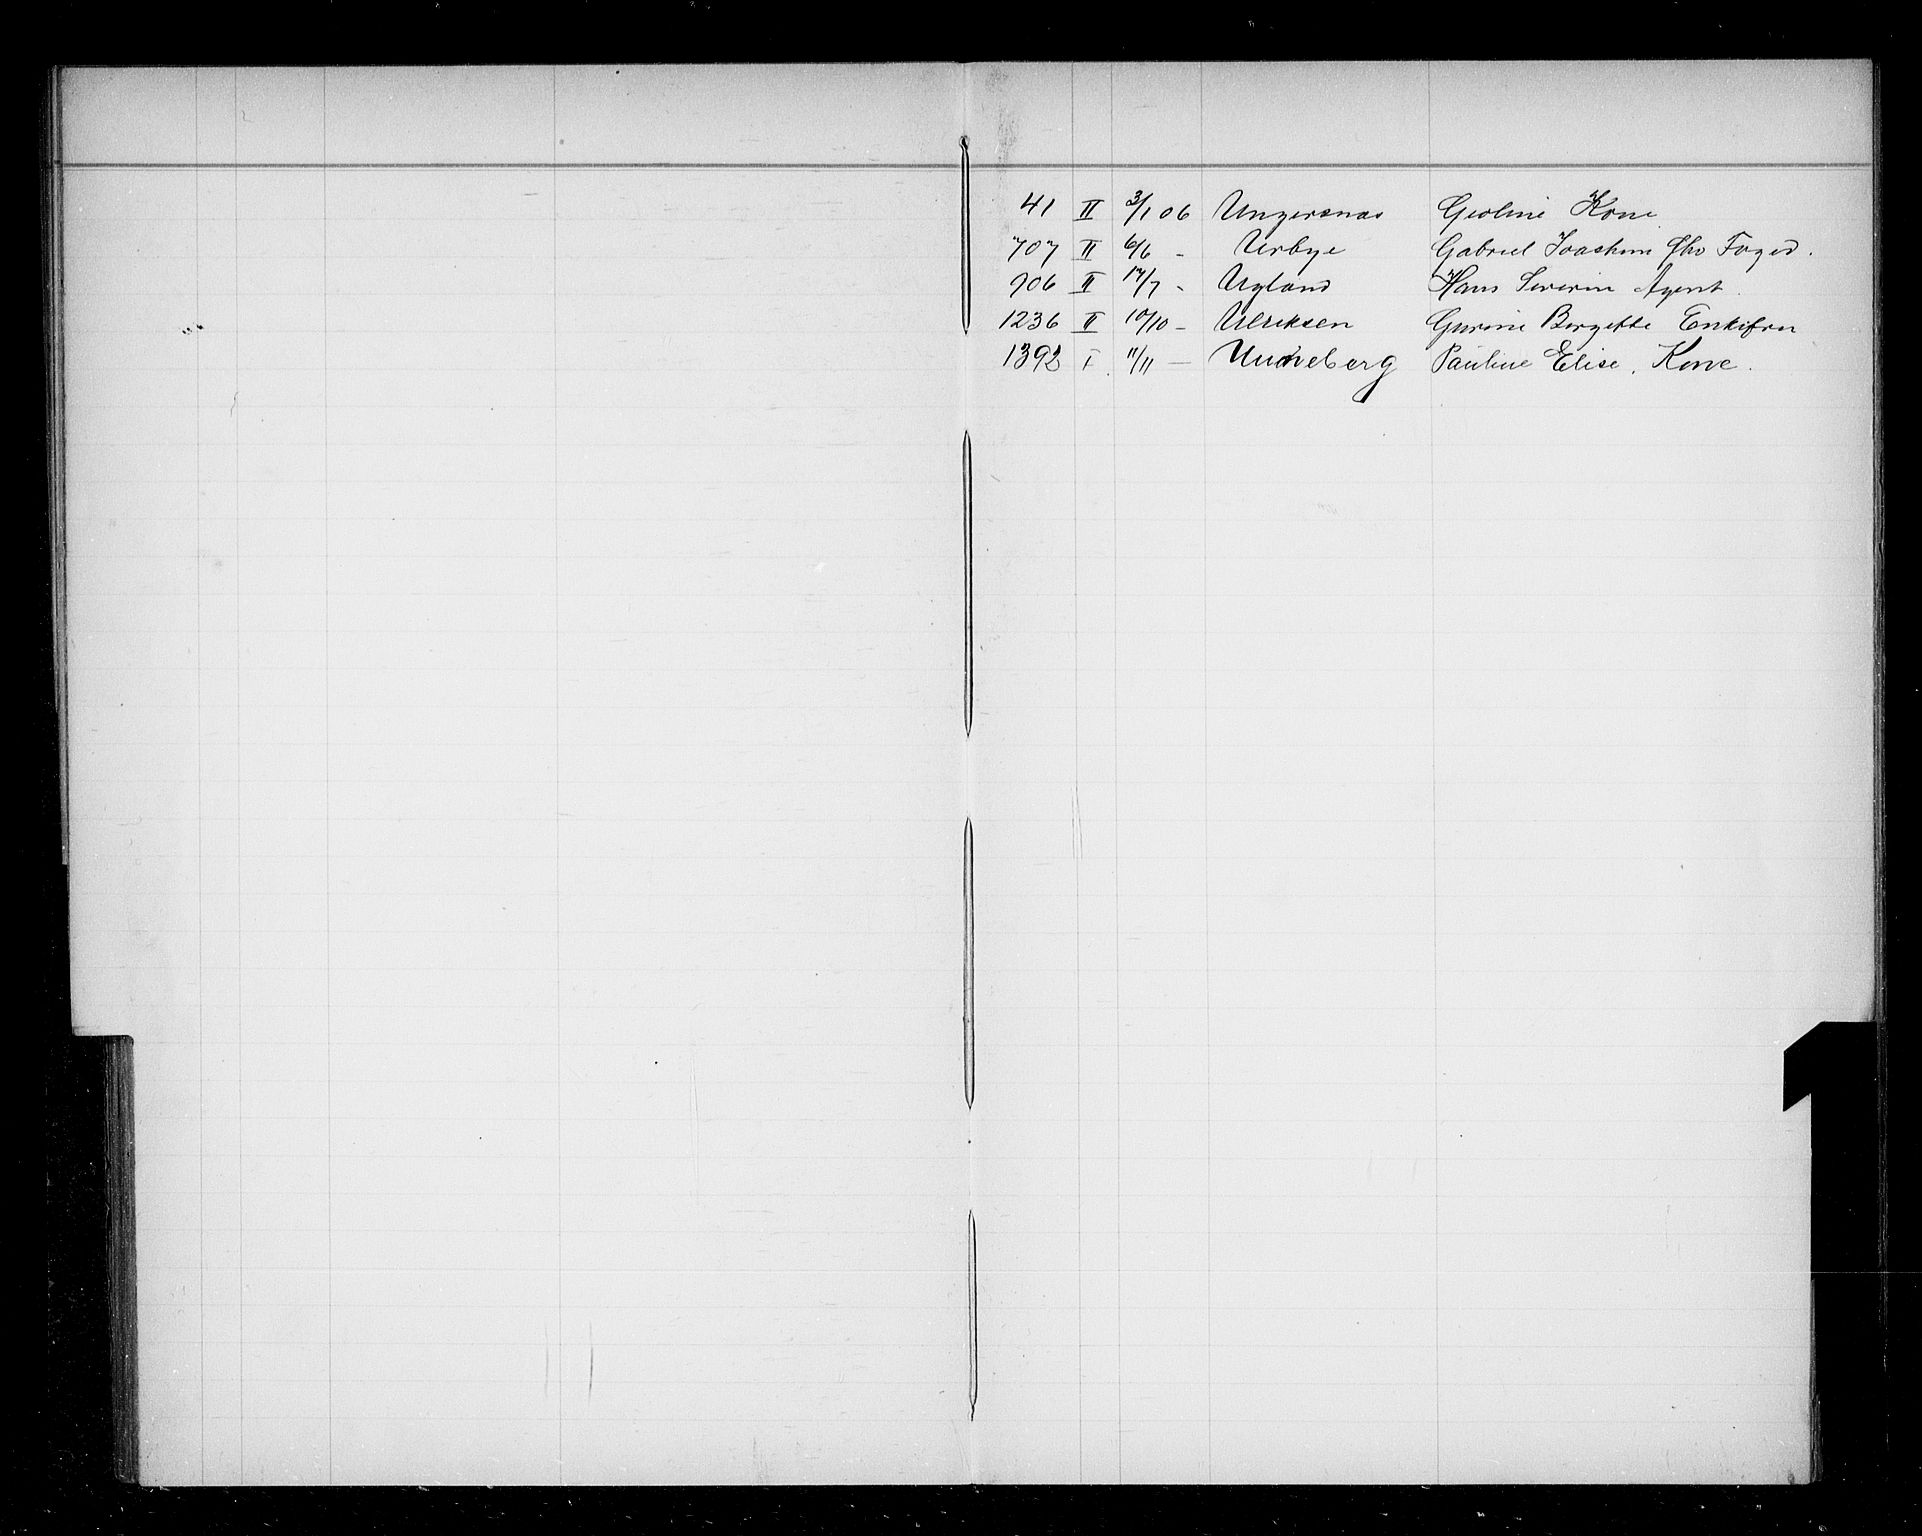 41 II 3/1 06 Ungersnas Geoline Kone
707 II 6/6 - Urbye Gabriel Joachim fhv Foged.
906 II 17/7 - Ugland Hans Severin Agent.
1236 II 10/10 - Ulriksen Gurine Bergette Enkefru
1392 I 11/11 — Unneberg Pauline Elise. Kone.